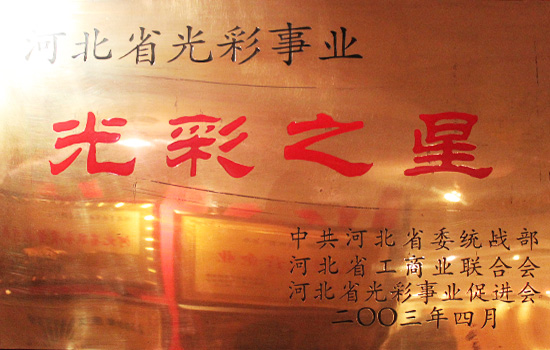 河北省光彩事业
光彩之星
中共河北省委统战部
河北省工商业联合会
河北省光彩事业促进会
二〇〇三年四月